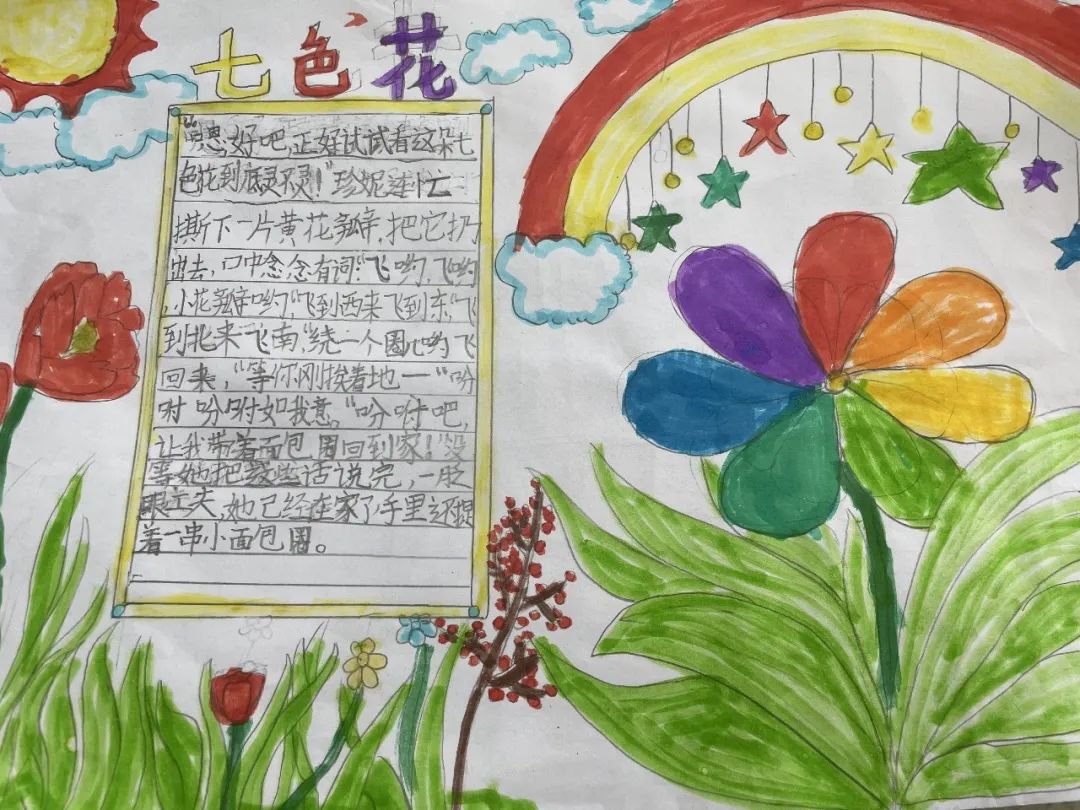 七色花
“嗯,好吧,正好试试看这朵七
色花到底灵不灵!”珍妮连忙
撕下一片黄花瓣,把它扔
出去,口中念念有词:“飞哟,飞哟
,小花瓣哟,”飞到西来飞到东,“飞
到北来飞南,”绕一个圈哟飞
回来,“等你刚挨着地一“吩
咐吩咐如我意。“吩咐吧,
让我带着面包圈回到家!”没
等她把这些话说完,一眨
眼工夫,她已经在家了,手里还提
着一串小面包圈。